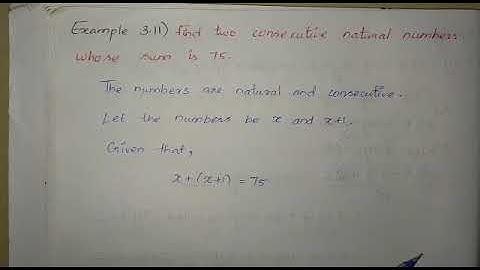 Example 3.11) find two consecutive natural numbers
whose sum is 75.
The numbers are natural and consecutive.
Let the numbers be x and x+1.
Given that,
x+(x+1) = 75